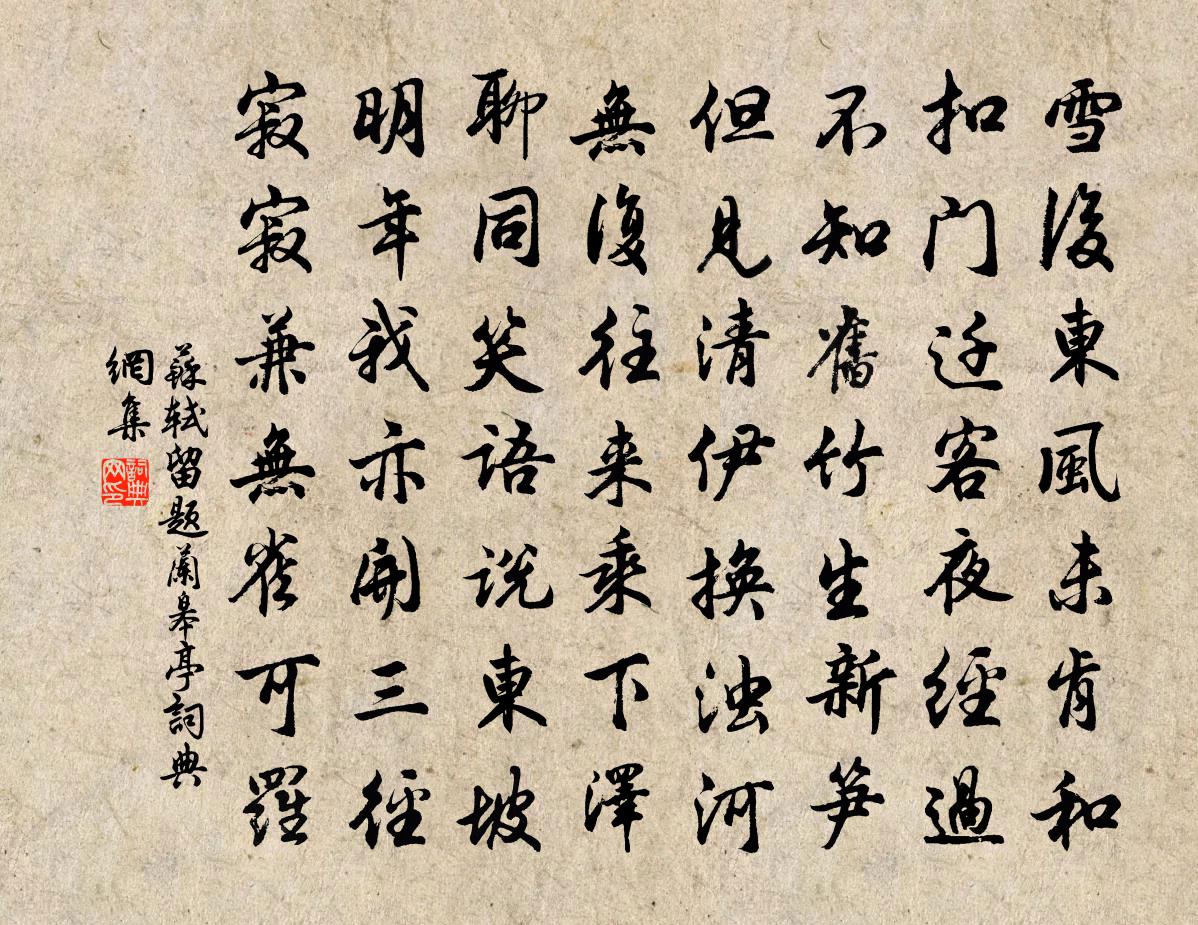 雪後東風未肯和
扣门迁客夜經過
不知舊竹生新笋
但見清伊換浊河
無復往来乘下澤
聊同笑語說東坡
明年我亦開三徑
寂寂兼無雀可羅
蘇軾留題蘭皋亭詞典
網集
詞典
网印